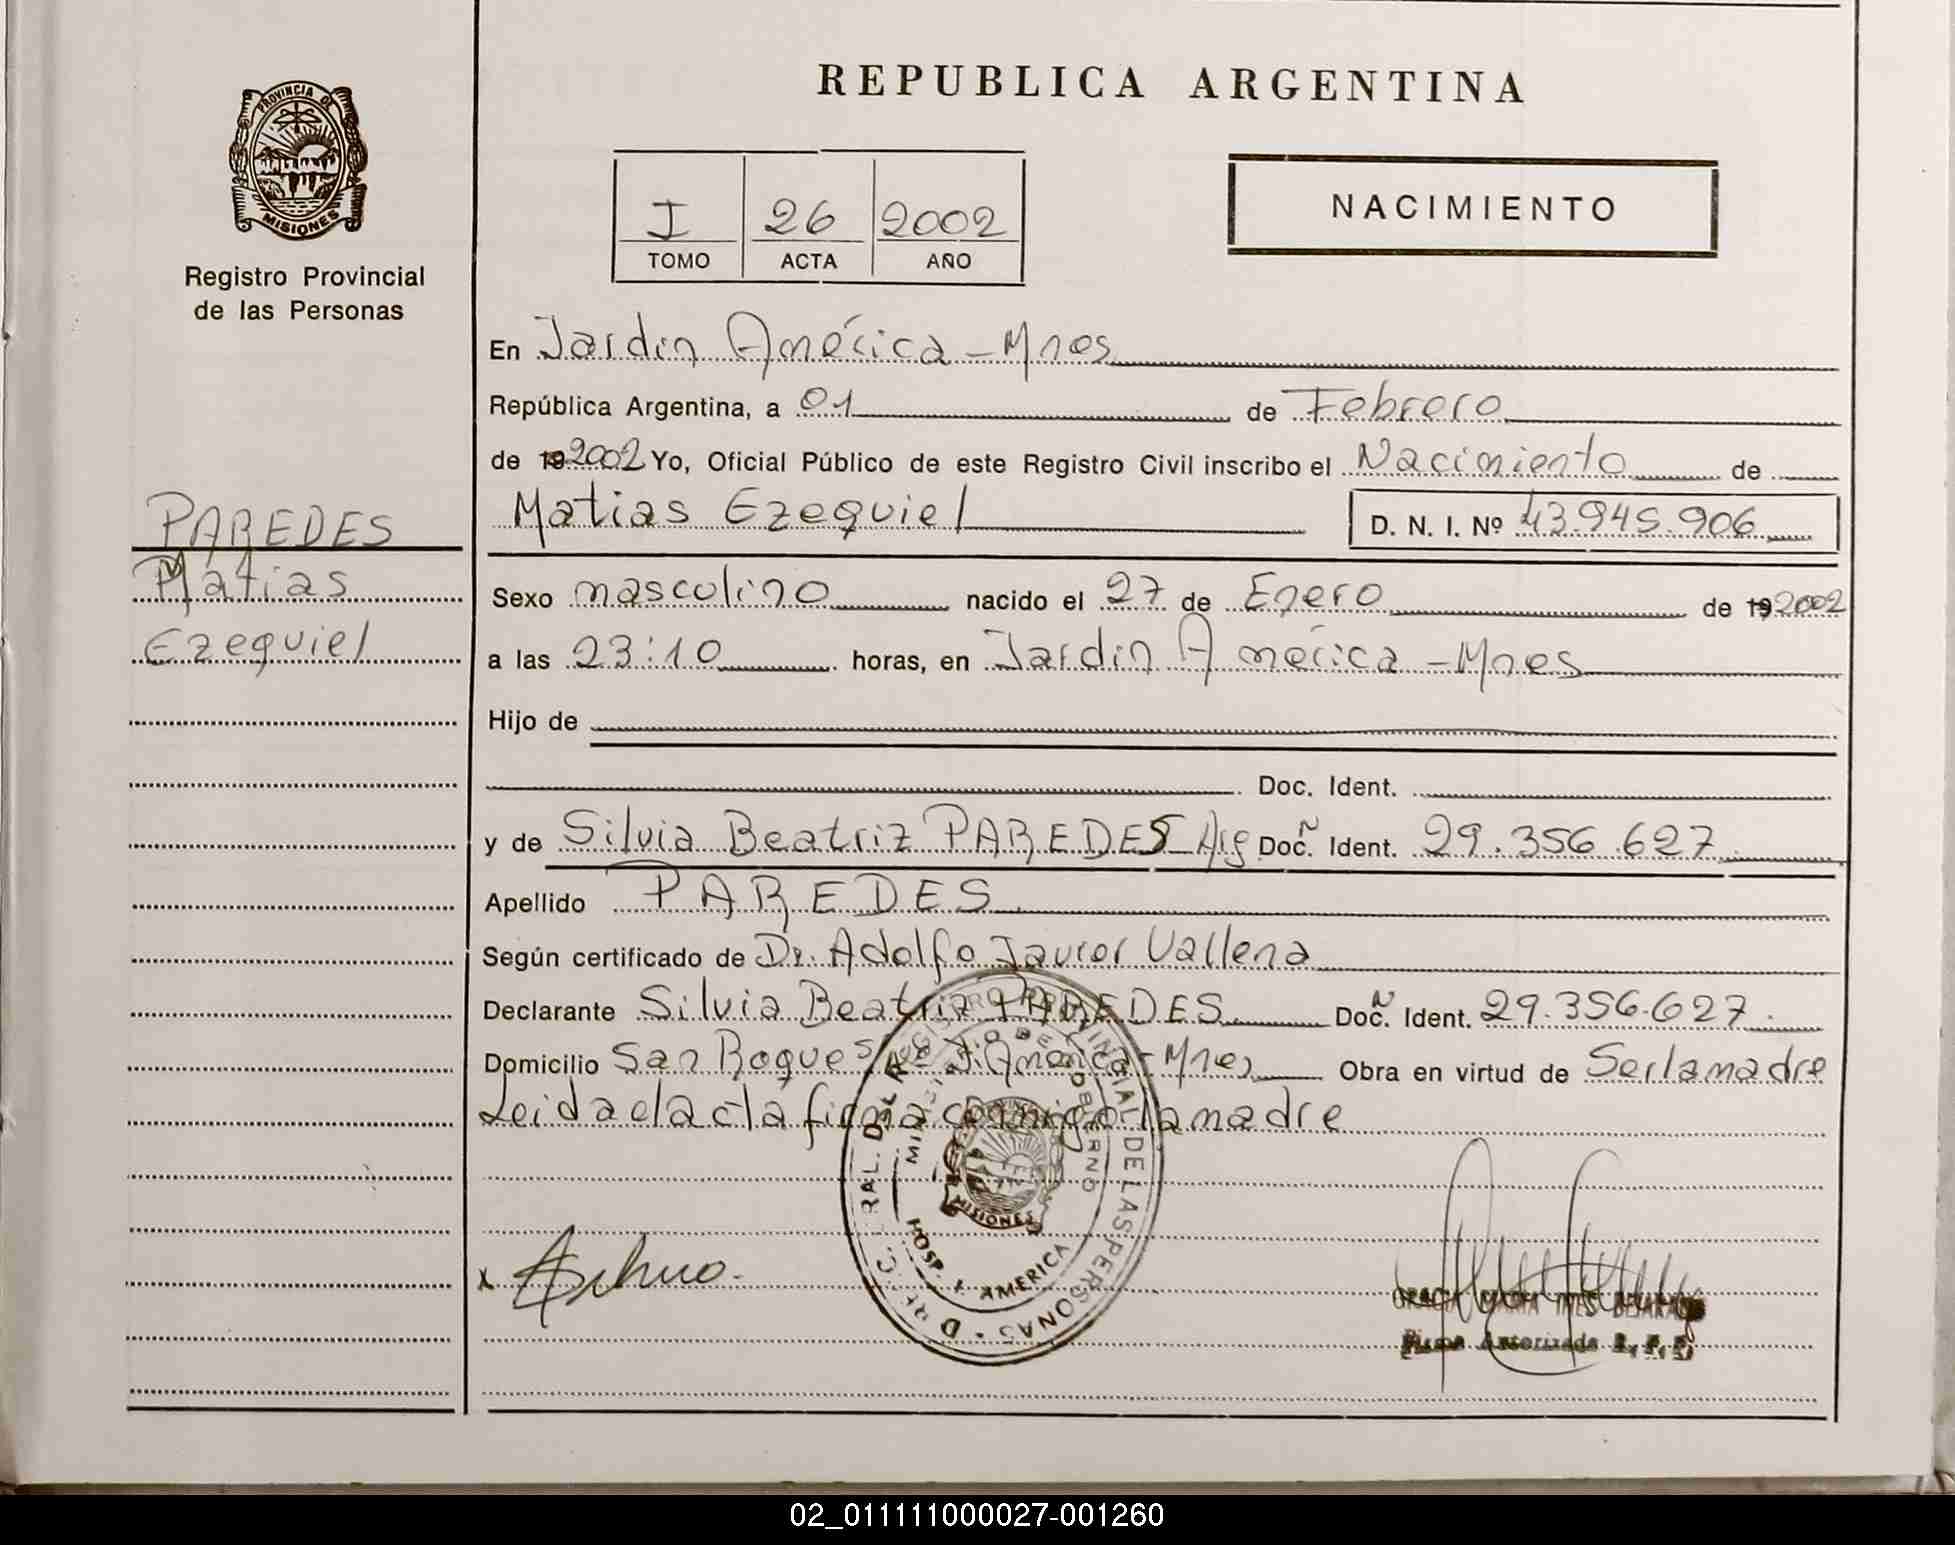 PROVINCIA DE
MISIONES
Registro Provincial
de las Personas
PAREDES
Matias
Ezequiel
REPUBLICA ARGENTINA
I 26 2002
TOMO ACTA AÑO
NACIMIENTO
En Jardin América - Mnes
República Argentina, a 01 de Febrero
de 19 2002 Yo, Oficial Público de este Registro Civil inscribo el Nacimiento de
Matias Ezequiel D. N. I. Nº 43.945.906
Sexo masculino nacido el 27 de Enero de 19 2002
a las 23:10 horas, en Jardin América - Mnes
Hijo de
Doc. Ident.
y de Silvia Beatriz PAREDES Arg Doc. Ident. 29.356.627
Apellido PAREDES
Según certificado de Dr. Adolfo Javier
Declarante Silvia Beatriz PAREDES Doc. Ident. 29.356.627.
Domicilio San Roque J. América - Mnes Obra en virtud de Ser la madre
Leida el acta firma conmigo la madre
PROVINCIAL DE LAS PERSONAS
MINISTERIO DE GOBIERNO
MISIONES
HOSP. AMERICA
x
Firma Autorizada
02_011111000027-001260